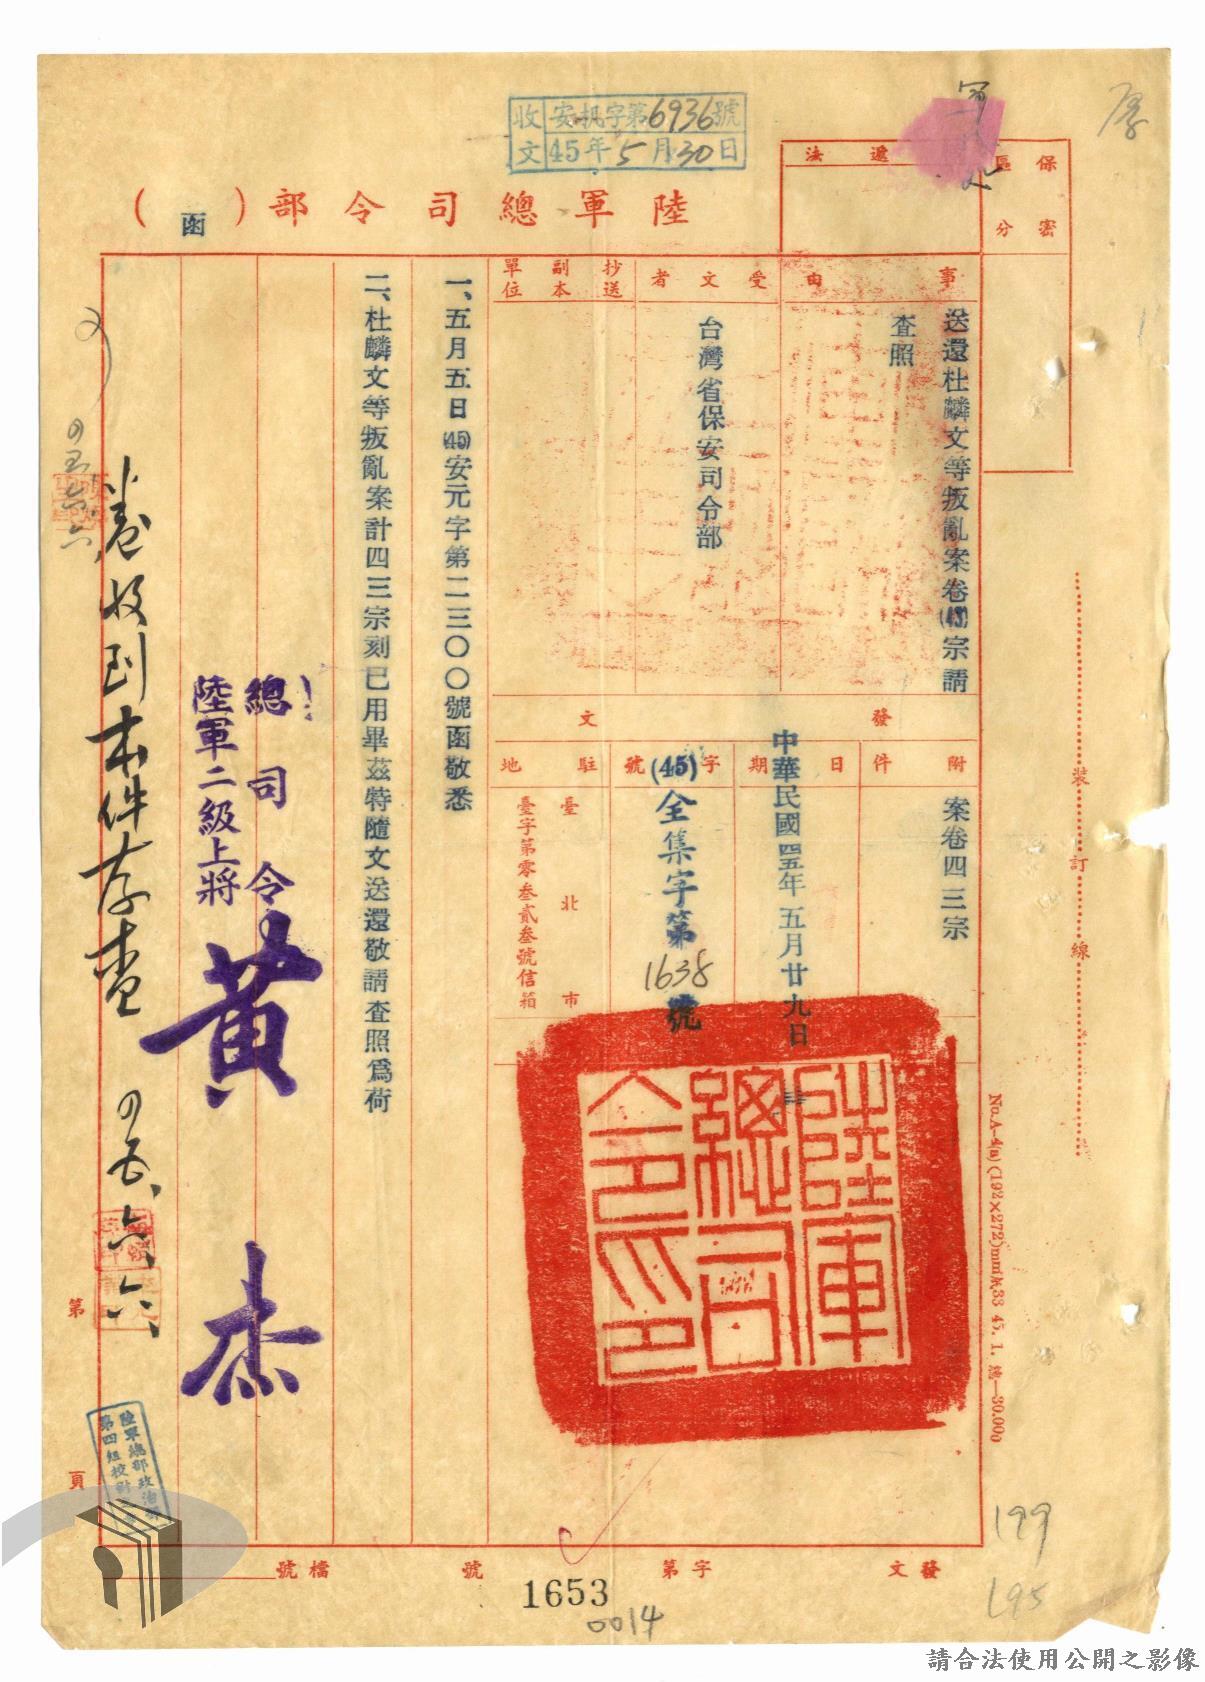 收文 安机字第6936號
45年5月30日
陸軍總司令部（函）
保密區分
遞法
事由
送還杜麟文等叛亂案卷(43)宗請
查照
受文者
台灣省保安司令部
抄送副本單位
發文
附件
案卷四三宗
日期
中華民國四五年五月廿九日
字號
(45)全集字第1638號
駐地
臺北市
臺字第零叁貳叁號信箱
一、五月五日(45)安元字第二三〇〇號函敬悉
二、杜麟文等叛亂案計四三宗刻已用畢茲特隨文送還敬請查照為荷
總司令
陸軍二級上將
黃杰
陸軍總司令印
卷收到本件存查
五、六六
第
頁
陸軍總部政治部
第四組校對
裝訂線
No.A-4(a)(192×272)mm
45.1.
30.000
發文
字第
號
檔號
1653
0014
199
195
請合法使用公開之影像